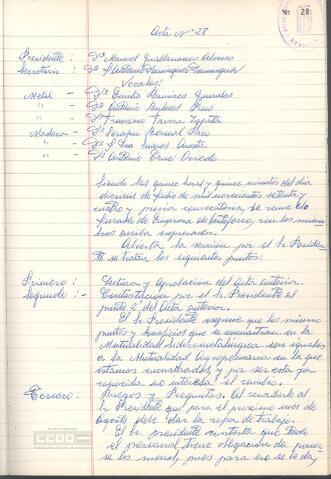 Nº 28
Acta Nº 28
Presidente: Dº Manuel
Secretario: Dº Antonio Dominguez Dominguez
Vocales:
Metal - Dº Emilio Ramirez Gonzales
" - Dº Antonio
" - Dº Francisco Tavora Zapata
Madera - Dº Serafin
" - Dº
" - Dº Antonio Cruz Oviedo
Siendo las quince horas y quince minutos del día
de Julio de mil novecientos setenta y
cuatro y previa convocatoria, se reune el
Jurado de Empresa de con los miem
bros arriba expresados:
Abierta la sesion por el Sr. Presiden
te se tratan los siguientes puntos:
Primero: Lectura y Aprobación del Acta anterior.
Segundo: - Contestacion por el Sr. Presidente al
punto 2º del Acta anterior.
El Sr. Presidente expone que los mismos
puntos y beneficios que se encuentran en la
Mutualidad Siderometalúrgica son iguales
a la Mutualidad Agropecuaria en la que
estamos encuadrados y por esta
no interesa el cambio.
Tercero: Ruegos y Preguntas. Al
Sr. Presidente que para el proximo mes de
Agosto debe dar la ropa de trabajo.
El Sr. presidente contesta que todo
el personal tiene obligación de poner
se los monos, pues para eso se le da,
CCOO